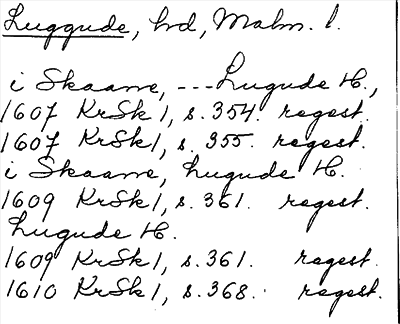 Luggude, hd, Malm. l.
i Skaane, --- Lugude H.,
1607 KrSk 1, s. 354. regest.
1607 KrSk 1, s. 355. regest.
i Skaane, Lugude H.
1609 KrSk 1, s. 361. regest.
Lugude H.
1609 KrSk 1, s. 361. regest.
1610 KrSk 1, s. 368. regest.